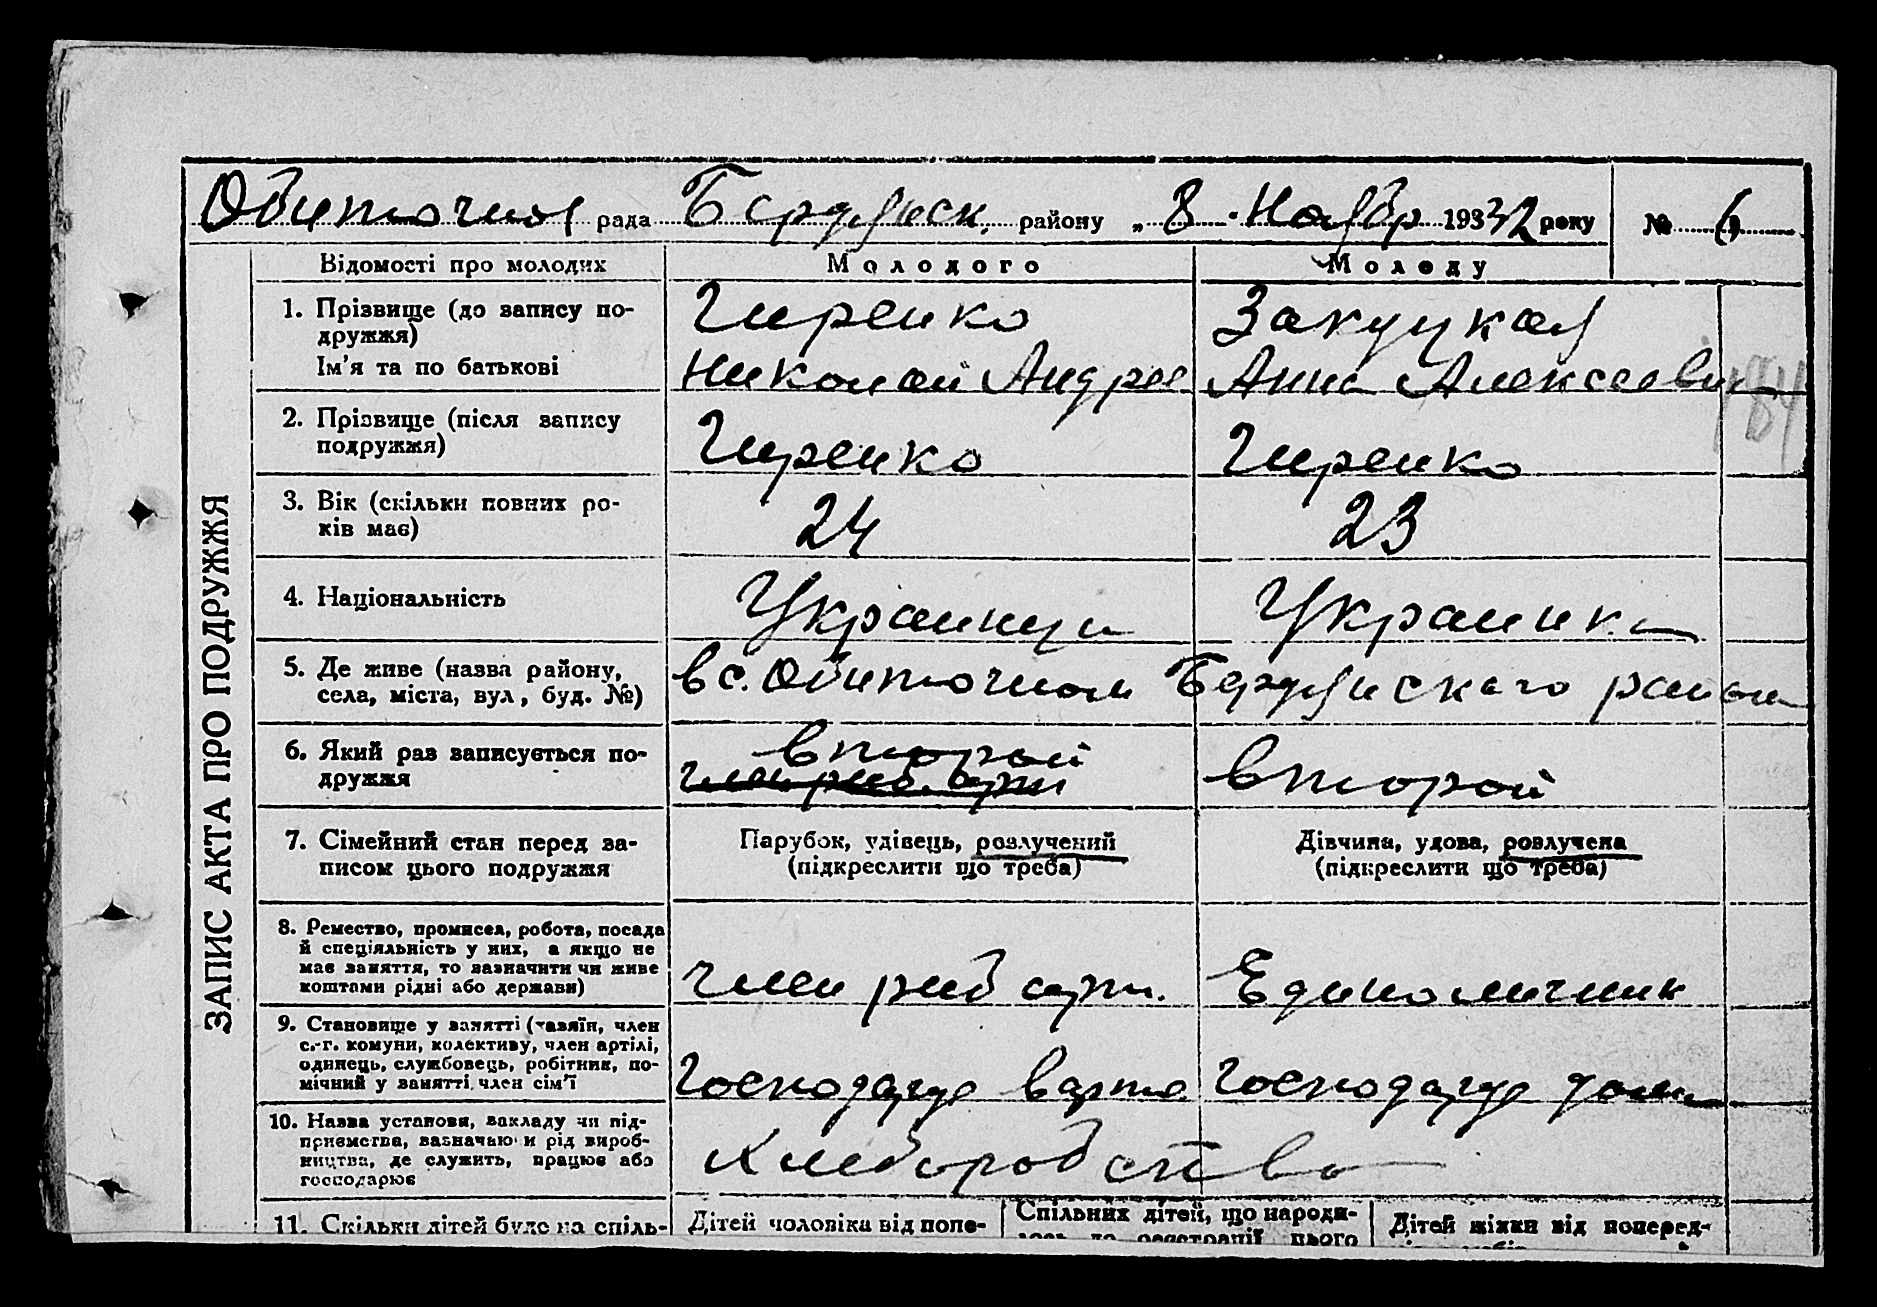 Обиточная рада Бердянск. району „ 8 " Ноябр 1932 року № 6
Відомості про молодих
Молодого
Молоду
ЗАПИС АКТА ПРО ПОДРУЖЖЯ
1. Прізвище (до запису по-
дружжя)
Ім'я та по батькові
Гиренко
Николай Андрее
Закуцкая
Анна Алексеевн
184
2. Прізвище (після запису
подружжя)
Гиренко
Гиренко
3. Вік (скільки повних ро-
ків має)
24
23
4. Національність
Украинец
Украинка
5. Де живе (назва району,
села, міста, вул, буд. №)
в с. Обиточном Бердянского района
6. Який раз записується по-
дружжя
второй
член риб. арт
второй
7. Сімейний стан перед за-
писом цього подружжя
Парубок, удівець, розлучений
(підкреслити що треба)
Дівчина, удова, розлучена
(підкреслити що треба)
8. Ремество, промисел, робота, посада
й спеціяльність у них, а якщо не
має заняття, то зазначити чи живе
коштами рідні або держави)
член риб арт.
Единоличник
9. Становище у занятті (хазяїн, член
с.-г. комуни, колективу, член артілі,
одинець, службовець, робітник, по-
мічний у занятті член сім'ї
Господарюе в арте
Господарюе дома
10. Назва установи, закладу чи під-
приємства, зазначаючи рід вироб-
ництва, де служить, працює або
господарює
Хлеборобство
11. Скільки дітей було на спіль-
Дітей чоловіка від попе-
Спільних дітей, що народи-
лось до реєстрації цього
Дітей жінки від поперед-